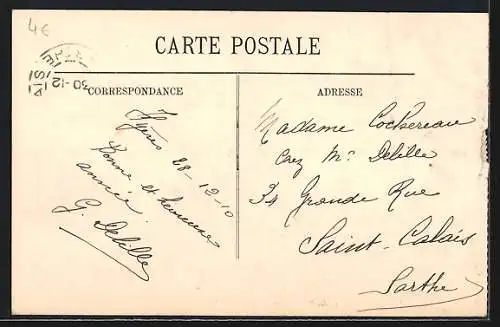 4€
30-12
CARTE POSTALE
CORRESPONDANCE
Hyères 28-12-10
Bonne et heureuse
année
G. Delille
ADRESSE
Madame Cochereau
Chez Mr Delille
34 Grande Rue
Saint-Calais
Sarthe